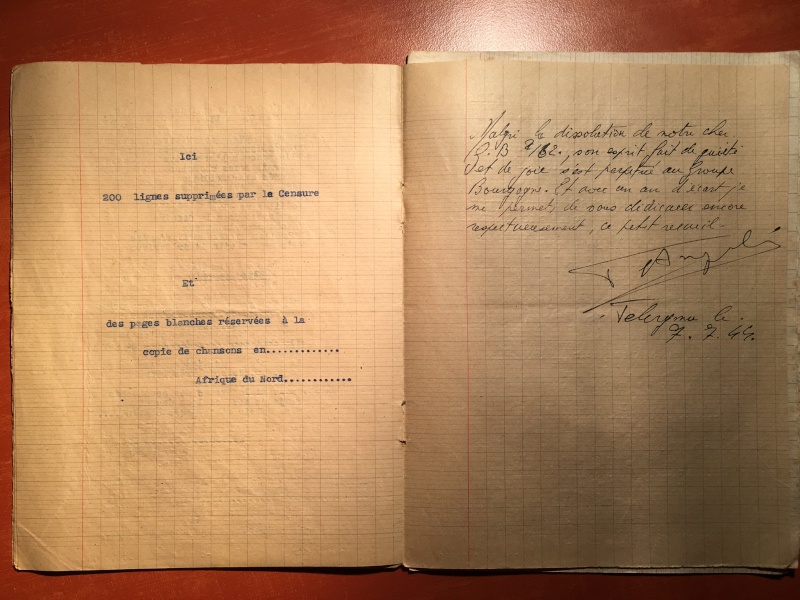 Ici
200 lignes supprimées par la Censure
Et
des pages blanches réservées à la
copie de chansons en.............
Afrique du Nord............
Malgré la dissolution de notre cher
G.B 2/62., son esprit fait de gaieté
et de joie s'est perpétué au Groupe
Bourgogne. Et avec un an d'écart je
me permets de vous dédicacer encore
respectueusement, ce petit recueil -
Telergma le
7. 7. 44.